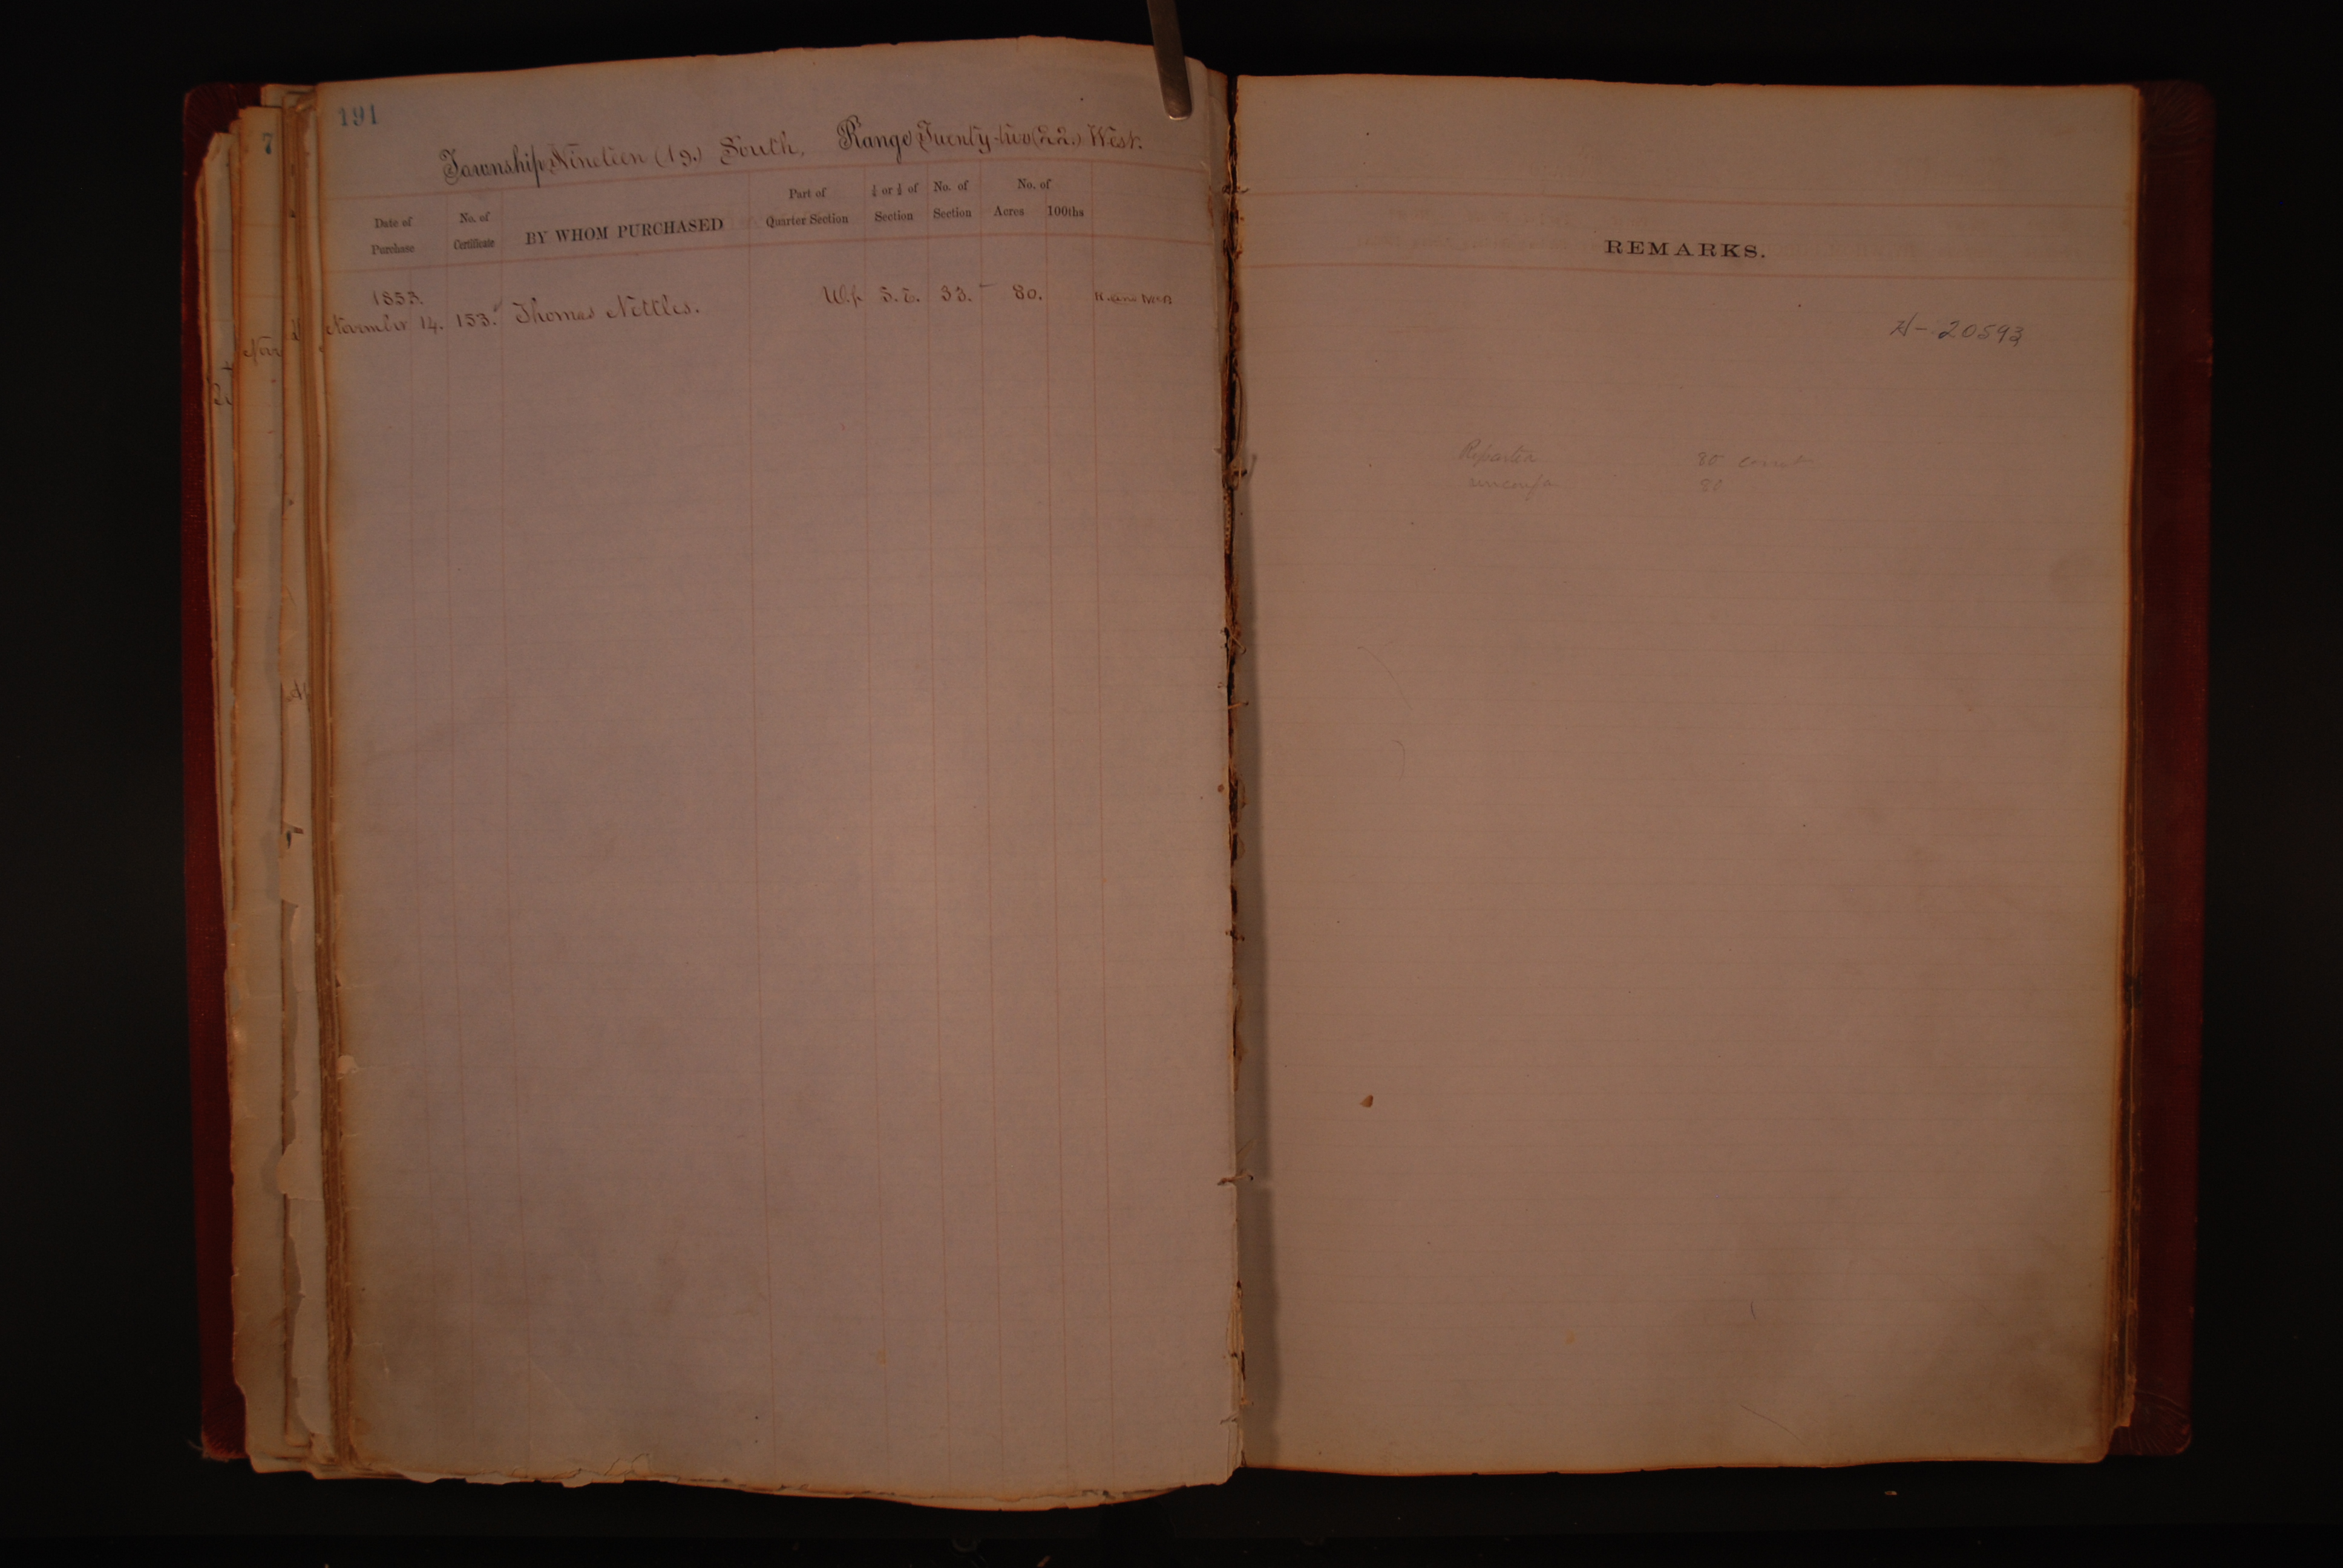 191
Township Nineteen (19.) South, Range Twenty-two (22.) West.
Date of Purchase
No. of Certificate
BY WHOM PURCHASED
Part of Quarter Section
¼ or ½ of Section
No. of Section
No. of
Acres 100ths
1853.
November 14. 153. Thomas Nettles. W.p. S.E. 33. 80.
REMARKS.
20593
80
80
7